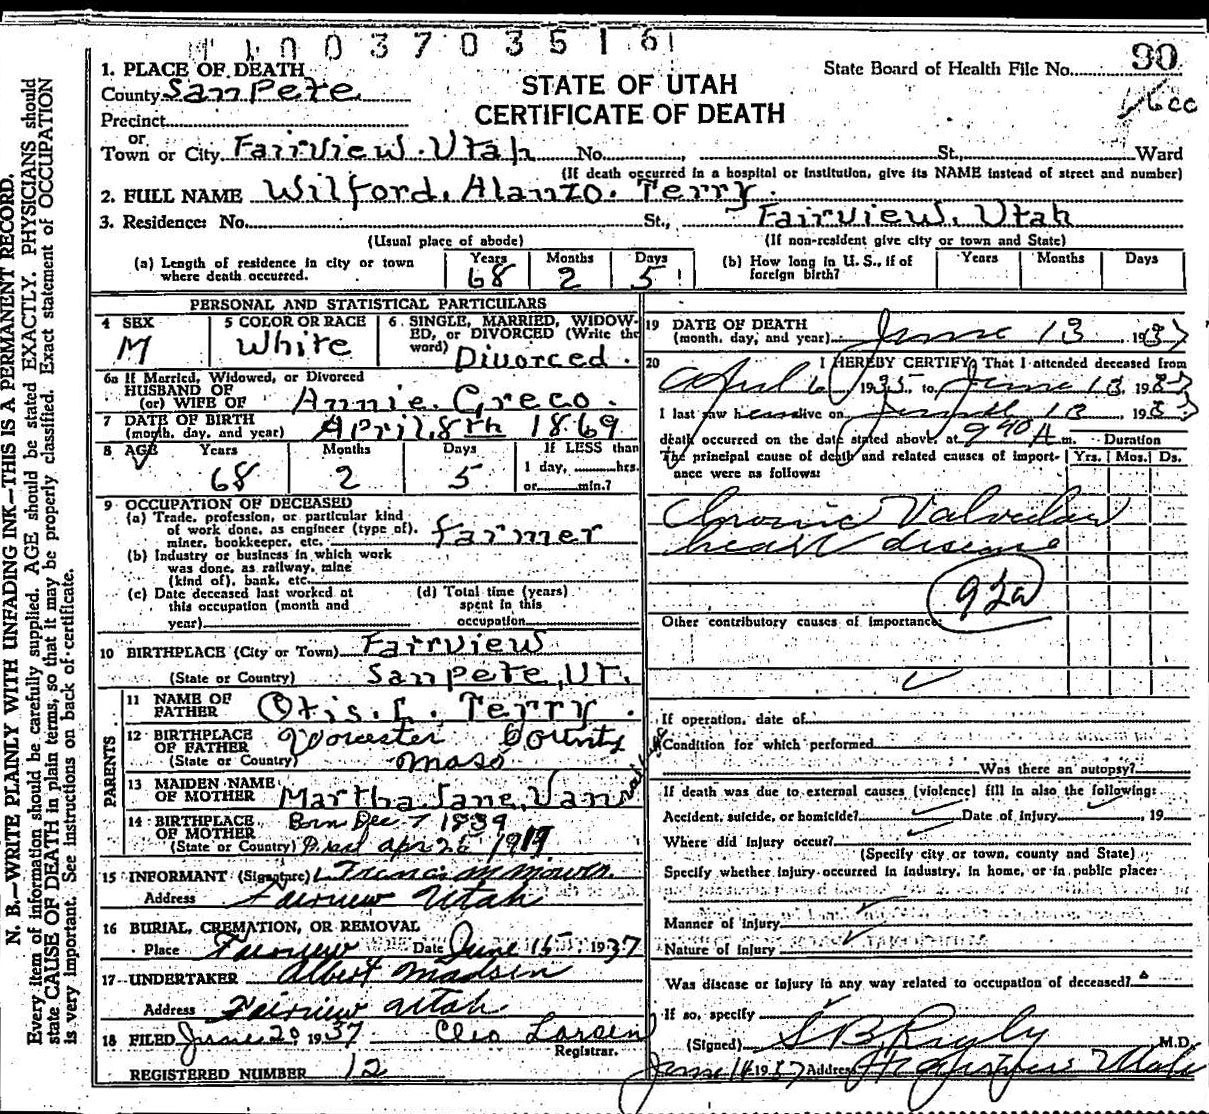 1 1 0 0 3 7 0 3 5 1 6 1
STATE OF UTAH
CERTIFICATE OF DEATH
State Board of Health File No. 90
1. PLACE OF DEATH
County SanPete
Precinct
or
Town or City Fairview. Utah No. , St., Ward
(If death occurred in a hospital or institution, give its NAME instead of street and number)
2. FULL NAME Wilford. Alanzo. Terry.
3. Residence: No. St., Fairview. Utah
(Usual place of abode) (If non-resident give city or town and State)
(a) Length of residence in city or town where death occurred. Years 68 Months 2 Days 5
(b) How long in U. S., if of foreign birth? Years Months Days
PERSONAL AND STATISTICAL PARTICULARS
4 SEX M
5 COLOR OR RACE White
6. SINGLE, MARRIED, WIDOWED, or DIVORCED (Write the word) Divorced.
6a If Married, Widowed, or Divorced
HUSBAND OF
(or) WIFE OF Annie. Greco.
7 DATE OF BIRTH
(month, day, and year) April, 8th 1869
8 AGE Years 68 Months 2 Days 5 If LESS than 1 day, hrs. or min.?
9 OCCUPATION OF DECEASED
(a) Trade, profession, or particular kind
of work done, as engineer (type of),
miner, bookkeeper, etc. farmer
(b) Industry or business in which work
was done, as railway, mine
(kind of), bank, etc.
(c) Date deceased last worked at
this occupation (month and
year)
(d) Total time (years)
spent in this
occupation
10 BIRTHPLACE (City or Town) Fairview
(State or Country) Sanpete, Ut.
PARENTS
11 NAME OF
FATHER Otis. L. Terry.
12 BIRTHPLACE
OF FATHER
(State or Country) Worcester County
mass
13 MAIDEN NAME
OF MOTHER Martha Jane, Van
14 BIRTHPLACE
OF MOTHER
(State or Country) Born Dec 7 1839
Died apr 26 1919
15 INFORMANT (Signature) Francis m mower
Address Fairview Utah
16 BURIAL, CREMATION, OR REMOVAL
Place Fairview Date June 15 1937
17 UNDERTAKER Albert Madsen
Address Fairview Utah
18 FILED June 20 1937 Cleo Larsen
Registrar.
REGISTERED NUMBER 12
19 DATE OF DEATH
(month, day, and year) June 13 1937
20 I HEREBY CERTIFY, That I attended deceased from
April 6 1935 to June 13, 1937
I last saw h alive on June 13 1937
death occurred on the date stated above, at 9 40 A m. Duration
The principal cause of death and related causes of importance were as follows: Yrs. Mos. Ds.
Chronic Valvular
heart disease
92a
Other contributory causes of importance:
If operation, date of
Condition for which performed
Was there an autopsy?
If death was due to external causes (violence) fill in also the following:
Accident, suicide, or homicide? Date of injury , 19
Where did injury occur?
(Specify city or town, county and State)
Specify whether injury occurred in industry, in home, or in public place:
Manner of injury
Nature of injury
Was disease or injury in any way related to occupation of deceased?
If so, specify
(Signed) S B Rigby M.D.
June 14 1937 Address Utah
N. B.—WRITE PLAINLY WITH UNFADING INK—THIS IS A PERMANENT RECORD.
Every item of information should be carefully supplied. AGE should be stated EXACTLY. PHYSICIANS should
state CAUSE OF DEATH in plain terms, so that it may be properly classified. Exact statement of OCCUPATION
is very important. See instructions on back of certificate.